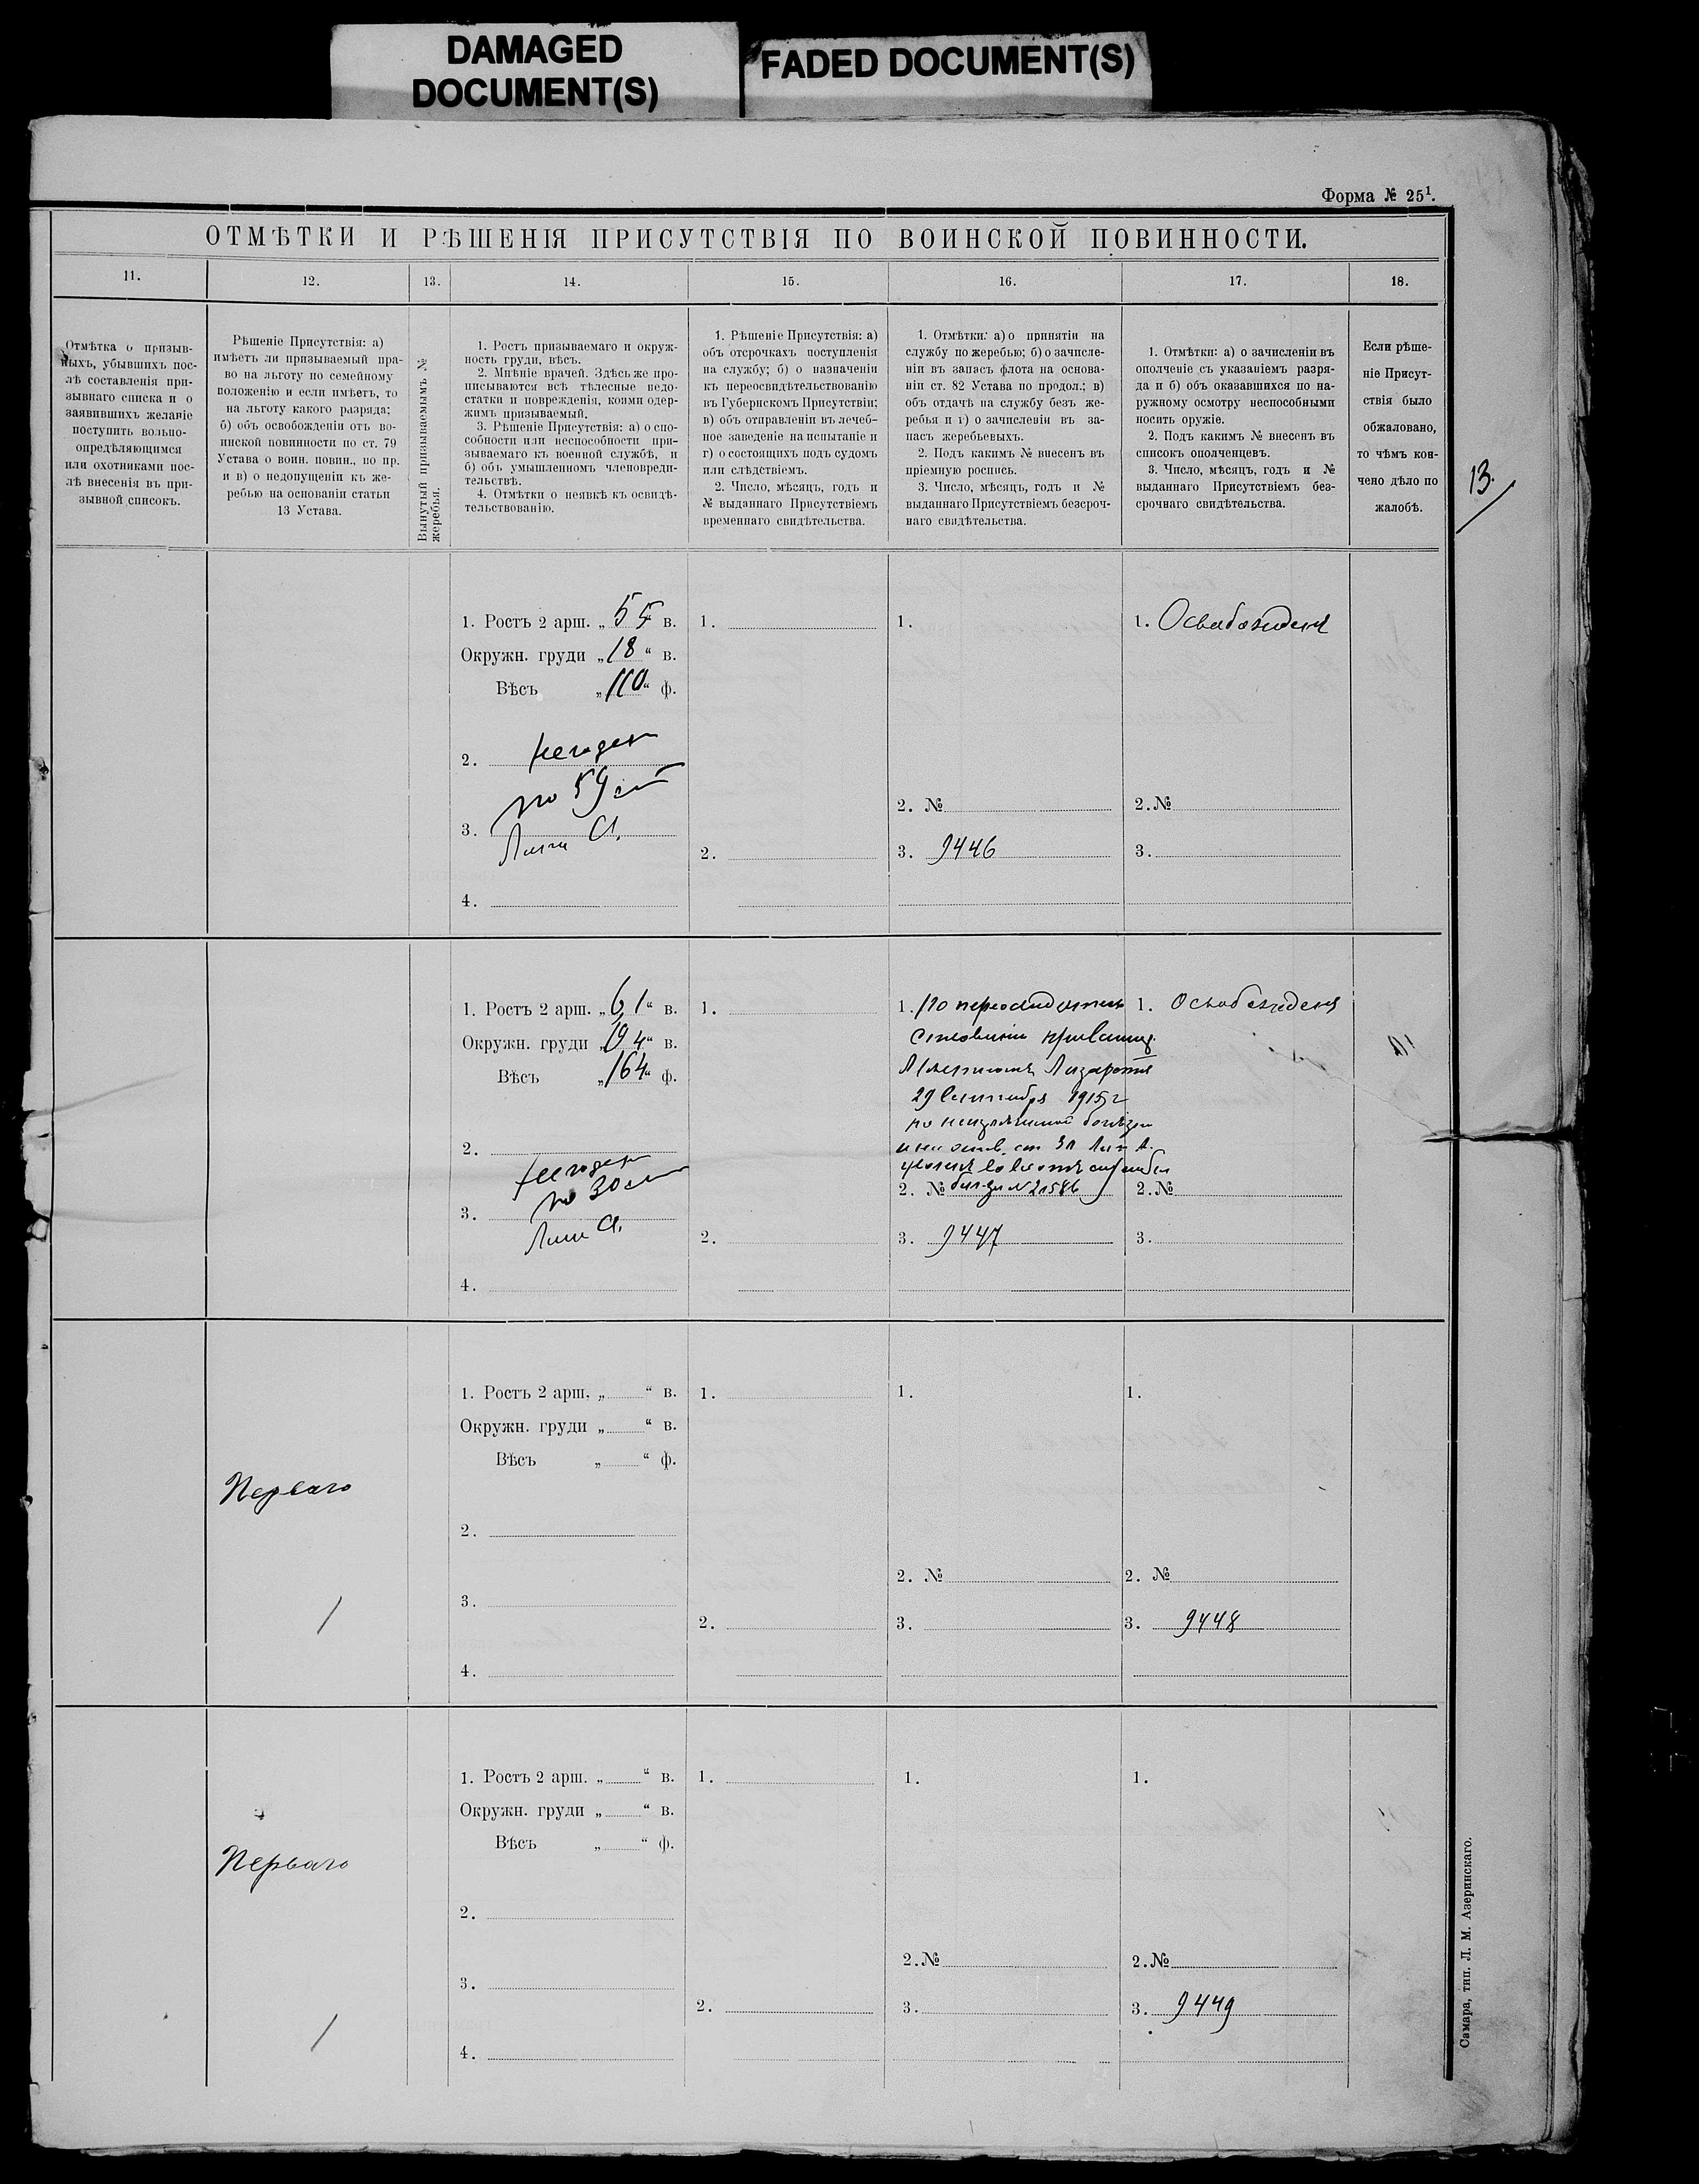 DAMAGED
DOCUMENT(S)
FADED DOCUMENT(S)
Форма № 25¹.
ОТМѢТКИ И РѢШЕНІЯ ПРИСУТСТВІЯ ПО ВОИНСКОЙ ПОВИННОСТИ.
11. 12. 13. 14. 15. 16. 17. 18.
Отмѣтка о призыв-
ныхъ, убывшихъ пос-
лѣ составленія при-
зывнаго списка и о
заявившихъ желаніе
поступить вольно-
опредѣляющимся
или охотниками пос-
лѣ внесенія въ при-
зывной списокъ.
Рѣшеніе Присутствія: а)
имѣетъ ли призываемый пра-
во на льготу по семейному
положенію и если имѣетъ, то
на льготу какого разряда;
б) объ освобожденіи отъ во-
инской повинности по ст. 79
Устава о воин. повин., по пр.
и в) о недопущеніи къ же-
ребью на основаніи статьи
13 Устава.
Вынутый призываемымъ №
жеребья.
1. Ростъ призываемаго и окруж-
ность груди, вѣсъ.
2. Мнѣніе врачей. Здѣсь же про-
писываются всѣ тѣлесные недо-
статки и поврежденія, коими одер-
жимъ призываемый.
3. Рѣшеніе Присутствія: а) о спо-
собности или неспособности при-
зываемаго къ военной службѣ, и
б) объ умышленномъ членовреди-
тельствѣ.
4. Отмѣтки о неявкѣ къ освидѣ-
тельствованію.
1. Рѣшеніе Присутствія: а)
объ отсрочкахъ поступленія
на службу; б) о назначеніи
къ переосвидѣтельствованію
въ Губернскомъ Присутствіи;
в) объ отправленіи въ лечеб-
ное заведеніе на испытаніе и
г) о состоящихъ подъ судомъ
или слѣдствіемъ.
2. Число, мѣсяцъ, годъ и
№ выданнаго Присутствіемъ
временнаго свидѣтельства.
1. Отмѣтки: а) о принятіи на
службу по жеребью; б) о зачисле-
ніи въ запасъ флота на основа-
ніи ст. 82 Устава по продол.; в)
объ отдачѣ на службу безъ же-
ребья и г) о зачисленіи въ за-
пасъ жеребьевыхъ.
2. Подъ какимъ № внесенъ въ
пріемную роспись.
3. Число, мѣсяцъ, годъ и №
выданнаго Присутствіемъ безсроч-
наго свидѣтельства.
1. Отмѣтки: а) о зачисленіи въ
ополченіе съ указаніемъ разря-
да и б) объ оказавшихся по на-
ружному осмотру неспособными
носить оружіе.
2. Подъ какимъ № внесенъ въ
списокъ ополченцевъ.
3. Число, мѣсяцъ, годъ и №
выданнаго Присутствіемъ без-
срочнаго свидѣтельства.
Если рѣше-
ніе Присут-
ствія было
обжаловано,
то чѣмъ кон-
чено дѣло по
жалобѣ.
13.
1. Ростъ 2 арш. „ 55 в. 1. 1. 1. Освобожденъ
Окружн. груди „ 18 “ в.
Вѣсъ „ 110 “ ф.
2. Негоденъ
по 59 ст
3. Лит А.
2. № 2. №
2. 3. 9446 3.
4.
1. Ростъ 2 арш. „ 6,1 “ в. 1.
Окружн. груди „ 194 “ в.
Вѣсъ „ 164 “ ф.
2. Негоденъ
по 30 ст
3. Лит А.
2.
4.
1. По переосвидѣтель
ствованіи
29 Сентября 1915 г
по неизлечимой болѣзни
Лит А.
2. № № 21586
3. 9447
1. Освобожденъ
2. №
3.
Перваго
1. Ростъ 2 арш. „ “ в. 1. 1. 1.
Окружн. груди „ “ в.
Вѣсъ „ “ ф.
2.
2. № 2. №
3.
2. 3. 3. 9448
4.
Перваго
1. Ростъ 2 арш. „ “ в. 1. 1. 1.
Окружн. груди „ “ в.
Вѣсъ „ “ ф.
2.
2. № 2. №
3.
2. 3. 3. 9449
4.
Самара, тип. Л. М. Азеринскаго.